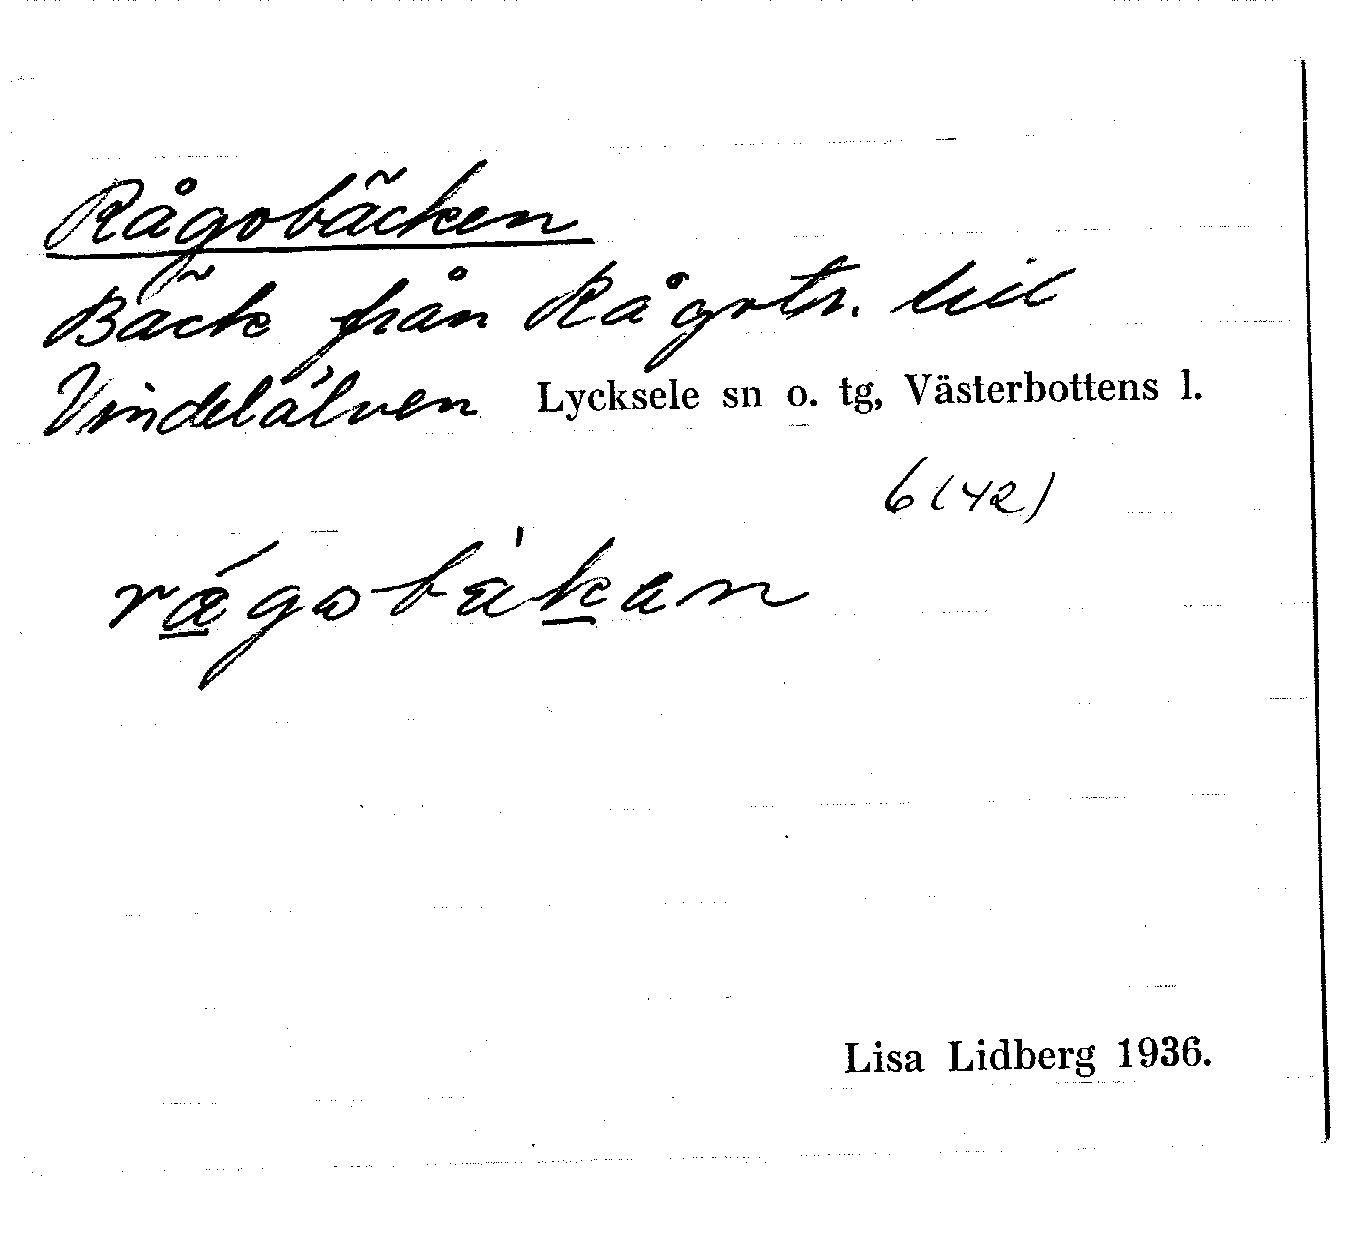 Rågobäcken
Bäck från Rågotr. till
Vindelälven Lycksele sn o. tg, Västerbottens l.
6 (42)
Lisa Lidberg 1936.